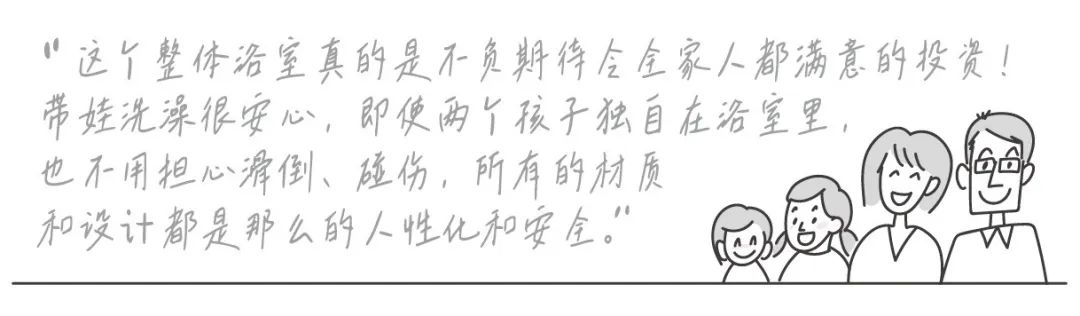 “这个整体浴室真的是不负期待令全家人都满意的投资！
带娃洗澡很安心，即使两个孩子独自在浴室里，
也不用担心滑倒、碰伤，所有的材质
和设计都是那么的人性化和安全。”